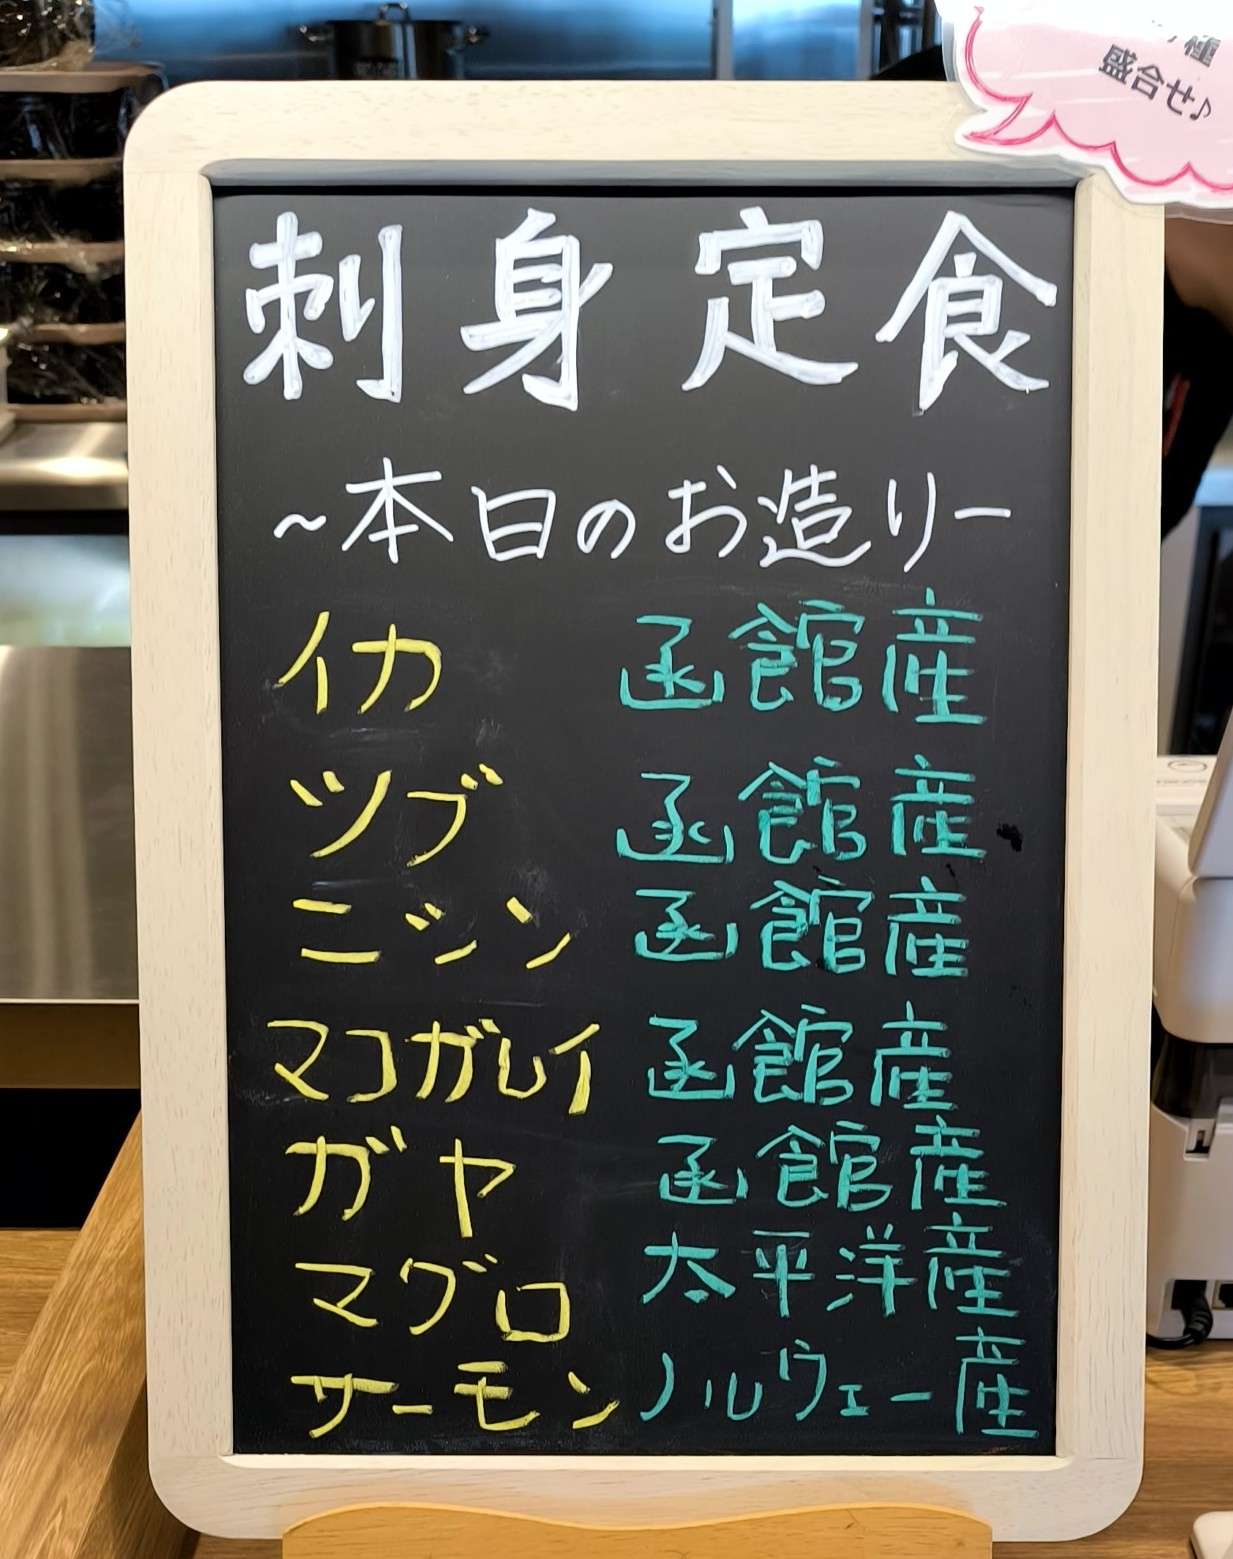 種
盛合せ♪
刺身定食
~本日のお造りー
イカ 函館産
ツブ 函館産
ニシン 函館産
マコガレイ 函館産
ガヤ 函館産
マグロ 太平洋産
サーモン ノルウェー産